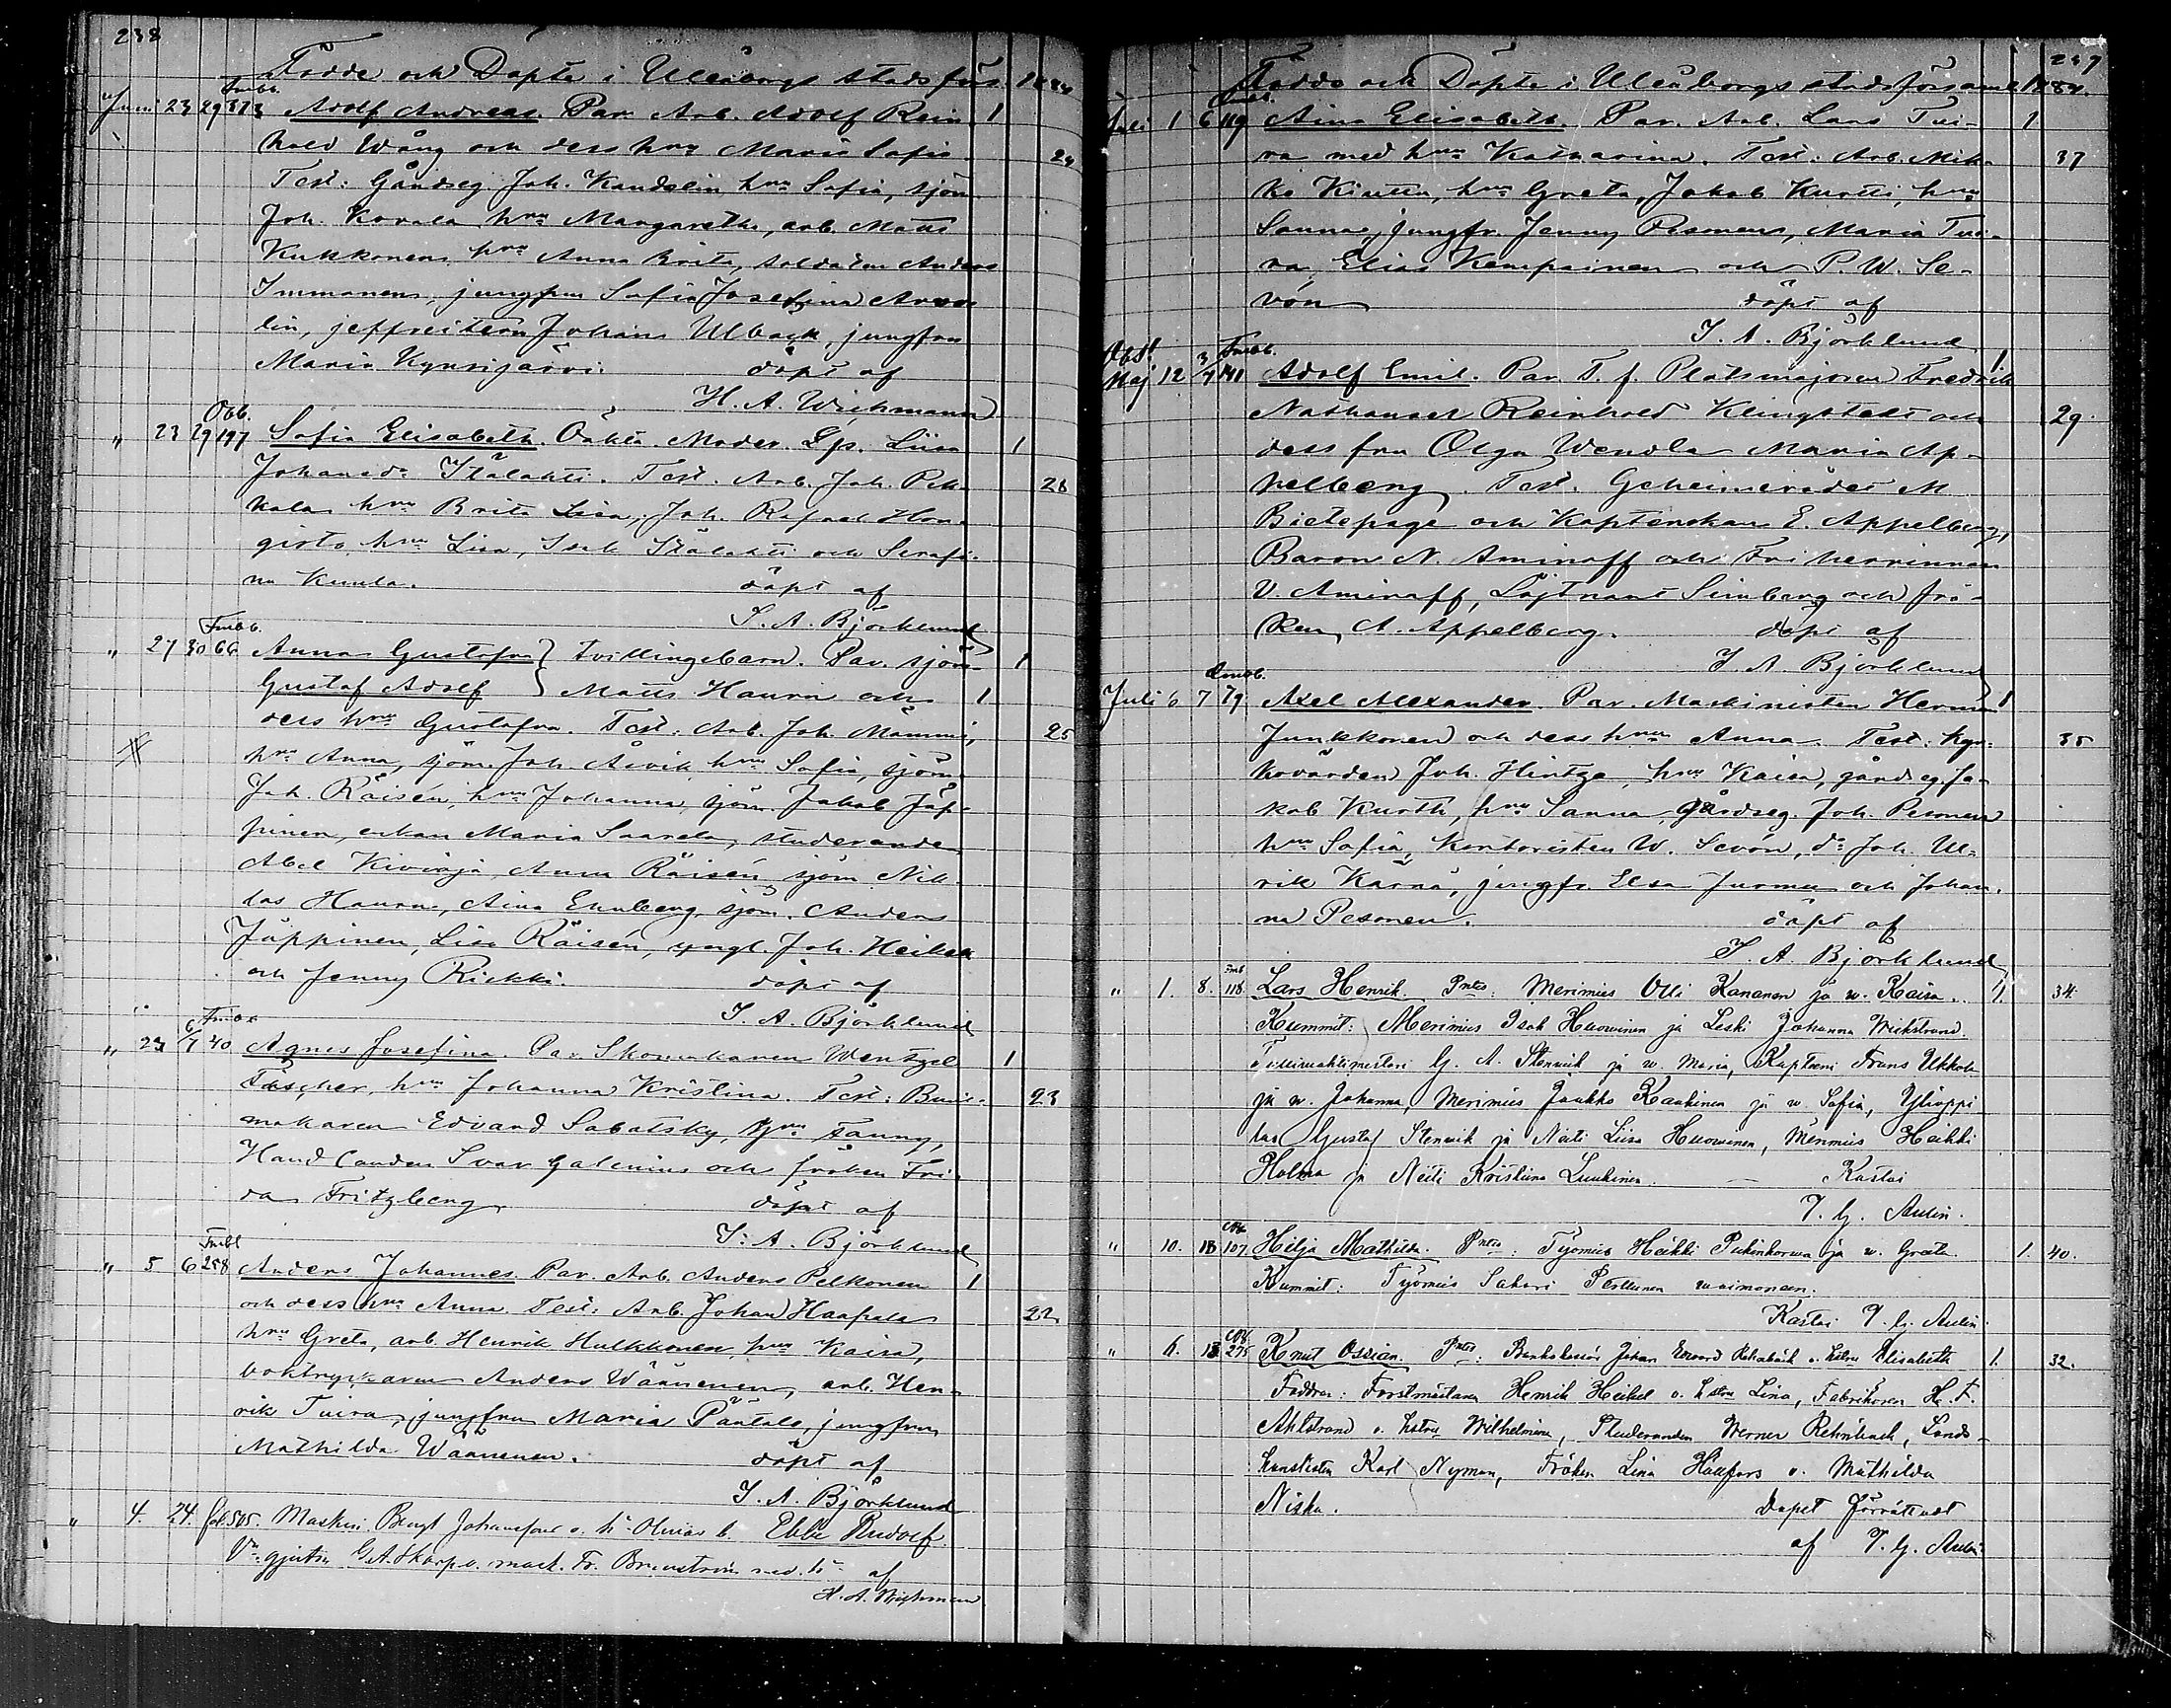 238
Födde och Döpte i Uleåborgs stads förs. 1884
Fmbb.
Juni 23 29 373 Adolf Andreas. Par. Arb. Adolf Rein- 1
hold Wång och dess hru Maria Sofia 24
Test: Gårdseg. Joh. Kandelin, hru Sofia, sjöm.
Joh. Korala hru Margaretha, arb. Matts
Kukkonen, hru Anna Brita, soldaten Anders
Immonen, jungfrun Sofia Josefina
lin, jeffreitern Johans Ulback, jungfru
Maria Kynsijärvi. döpt af
H. A. Wichmann
Obb.
" 23 29 197 Sofia Elisabeth. Oäkta. Moder. Lp. Liisa 1
Johansdr Itälahti. Test. Arb. Joh. Pek- 28
kala hru Brita Lisa, Joh. Rafael Hon-
gisto, hru Lisa, Isak Itälahti och Serafi-
na Kuula. döpt af
I. A. Björklund
Fmbb.
" 27 30 66 Anna Gustafva } Tvillingebarn. Par. sjöm. 1
Gustaf Adolf } Matts Hauru och 1
dess hru Gustafva. Test: Arb. Joh. Mämmi, 25
hru Anna, sjöm. Joh. Åivik, hru Sofia, sjöm.
Joh. Räisén, hru Johanna, sjöm. Jakob Jäp-
pinen, enkan Maria Saarela, studeranden
Abel Kivioja, Anna Räisén, sjöm. Nik-
las Hauru, Aina Enuberg, sjöm. Anders
Jäppinen, Lisa Räisén, yngl. Joh. Heikel
och Jenny Riekki. döpt af
I. A. Björklund
Fmbb.
" 23 6/7 40 Agnes Josefina. Par. Skomakaren Wentzel 1
Tascher, hru Johanna Kristina. Test: Bunt- 23
makaren Edvard Sabatsky, hru Fanny,
Hand landen Svar Galenius och fröken Fri-
da Fritzberg döpt af
I. A. Björklund
Fmbl
" 5 6 258 Anders Johannes. Par. Arb. Anders Pelkonen 1
och dess hru Anna. Test: Arb. Johan Haapala 22
hru Greta, arb. Henrik Hulkkonen, hru Kaisa,
boktryckaren Anders Wäänenen, arb. Hen-
rik Tuira, jungfru Maria Päätalo, jungfru
Mathilda Wäänenen. döpt af
I. A. Björklund
" 4. 24. fol. 505. Maskin. Bengt Johansson o. h. Olivias b. Ebbe Rudolf
V. gjutn. G. A. Skarp o. mask. Fr. Brunström med h. af
H. A. Wichmann
239
Födde och Döpte i Uleåborgs stadsförsaml. 1884.
Fmbl.
Juli 1 6 119 Aina Elisabeth. Par. Arb. Lars Tui- 1
ra med hru Katharina. Test: Arb. Mik- 37
ko Kiuttu, hru Greta, Jakob Kurtti, hru
Sanna, jungfr. Jenny Pesonen, Maria Tui-
ra, Elias Kempainen och P. W. Se-
vón döpt af
I. A. Björklund
Obs! Fmbb.
Maj 12 3/7 141 Adolf Emil. Par. T. f. Platsmajoren Fredrik 1
Nathanael Reinhold Klingstedt och 29
dess fru Olga Wendla Maria Ap-
pelberg. Test. Geheimerådet M.
Bietepage och Kaptenskan E. Appelberg,
Baron N. Aminoff och Friherrinnan
V. Aminoff, Löjtnant Simberg och frö-
ken A. Appelberg. döpt af
I. A. Björklund
Fmbb.
Juli 6 7 79 Axel Alexander. Par. Maskinisten Herman 1
Junkkonen och dess hru Anna. Test: Kyr- 35
kovärden Joh. Hintza, hru Kaisa, gårdseg. Ja-
kob Kurtti, hru Sanna, gårdseg. Joh. Pesonen
hru Sofia, Kontoristen W. Sevón, do Joh. Ul-
rik Karnä, jungfr. Elsa Jurmu och Johan-
na Pesonen. döpt af
I. A. Björklund
Fmb
" 1. 8. 118 Lars Henrik. Pntes: Merimies Olli Kananen ja w. Kaisa. 1. 34.
Kummit: Merimies Isak Huowinen ja Leski Johanna Wickstrand.
Tullivahtimestari G. A. Stenwik ja w. Maria, Kapteeni Frans Ukkola
ja w. Johanna, Merimies Jaakko Kaakinen ja w. Sofia, Ylioppi-
las Gustaf Stenwik ja Neiti Liisa Huowinen, Merimies Heikki
Holma ja Neiti Kristiina Luukinen. — Kastoi
T. G. Aulin.
" 10. 13 107 Hilja Mathilda. Pntes: Työmies Heikki Pukinkorwa ja w. Greeta. 1. 40.
Kummit: Työmies Sakari Perttunen waimoneen.
Kastoi T. G. Aulin.
" 6. 13 275 Knut Ossian. Pntes: Bankokassör Johan Edvard Rehnbäck o. hstru Elisabeth 1. 32.
Faddrar: Forstmästaren Henrik Heikel o. hstru Lina, Fabrikören H. F.
Ahlstrand o. hstru Wilhelmina, Studeranden Werner Rehnbäck, Lands-
kanslisten Karl Nyman, Fröken Lina Hallfors o. Mathilda
Niska. Dopet förrättadt
af T. G. Aulin